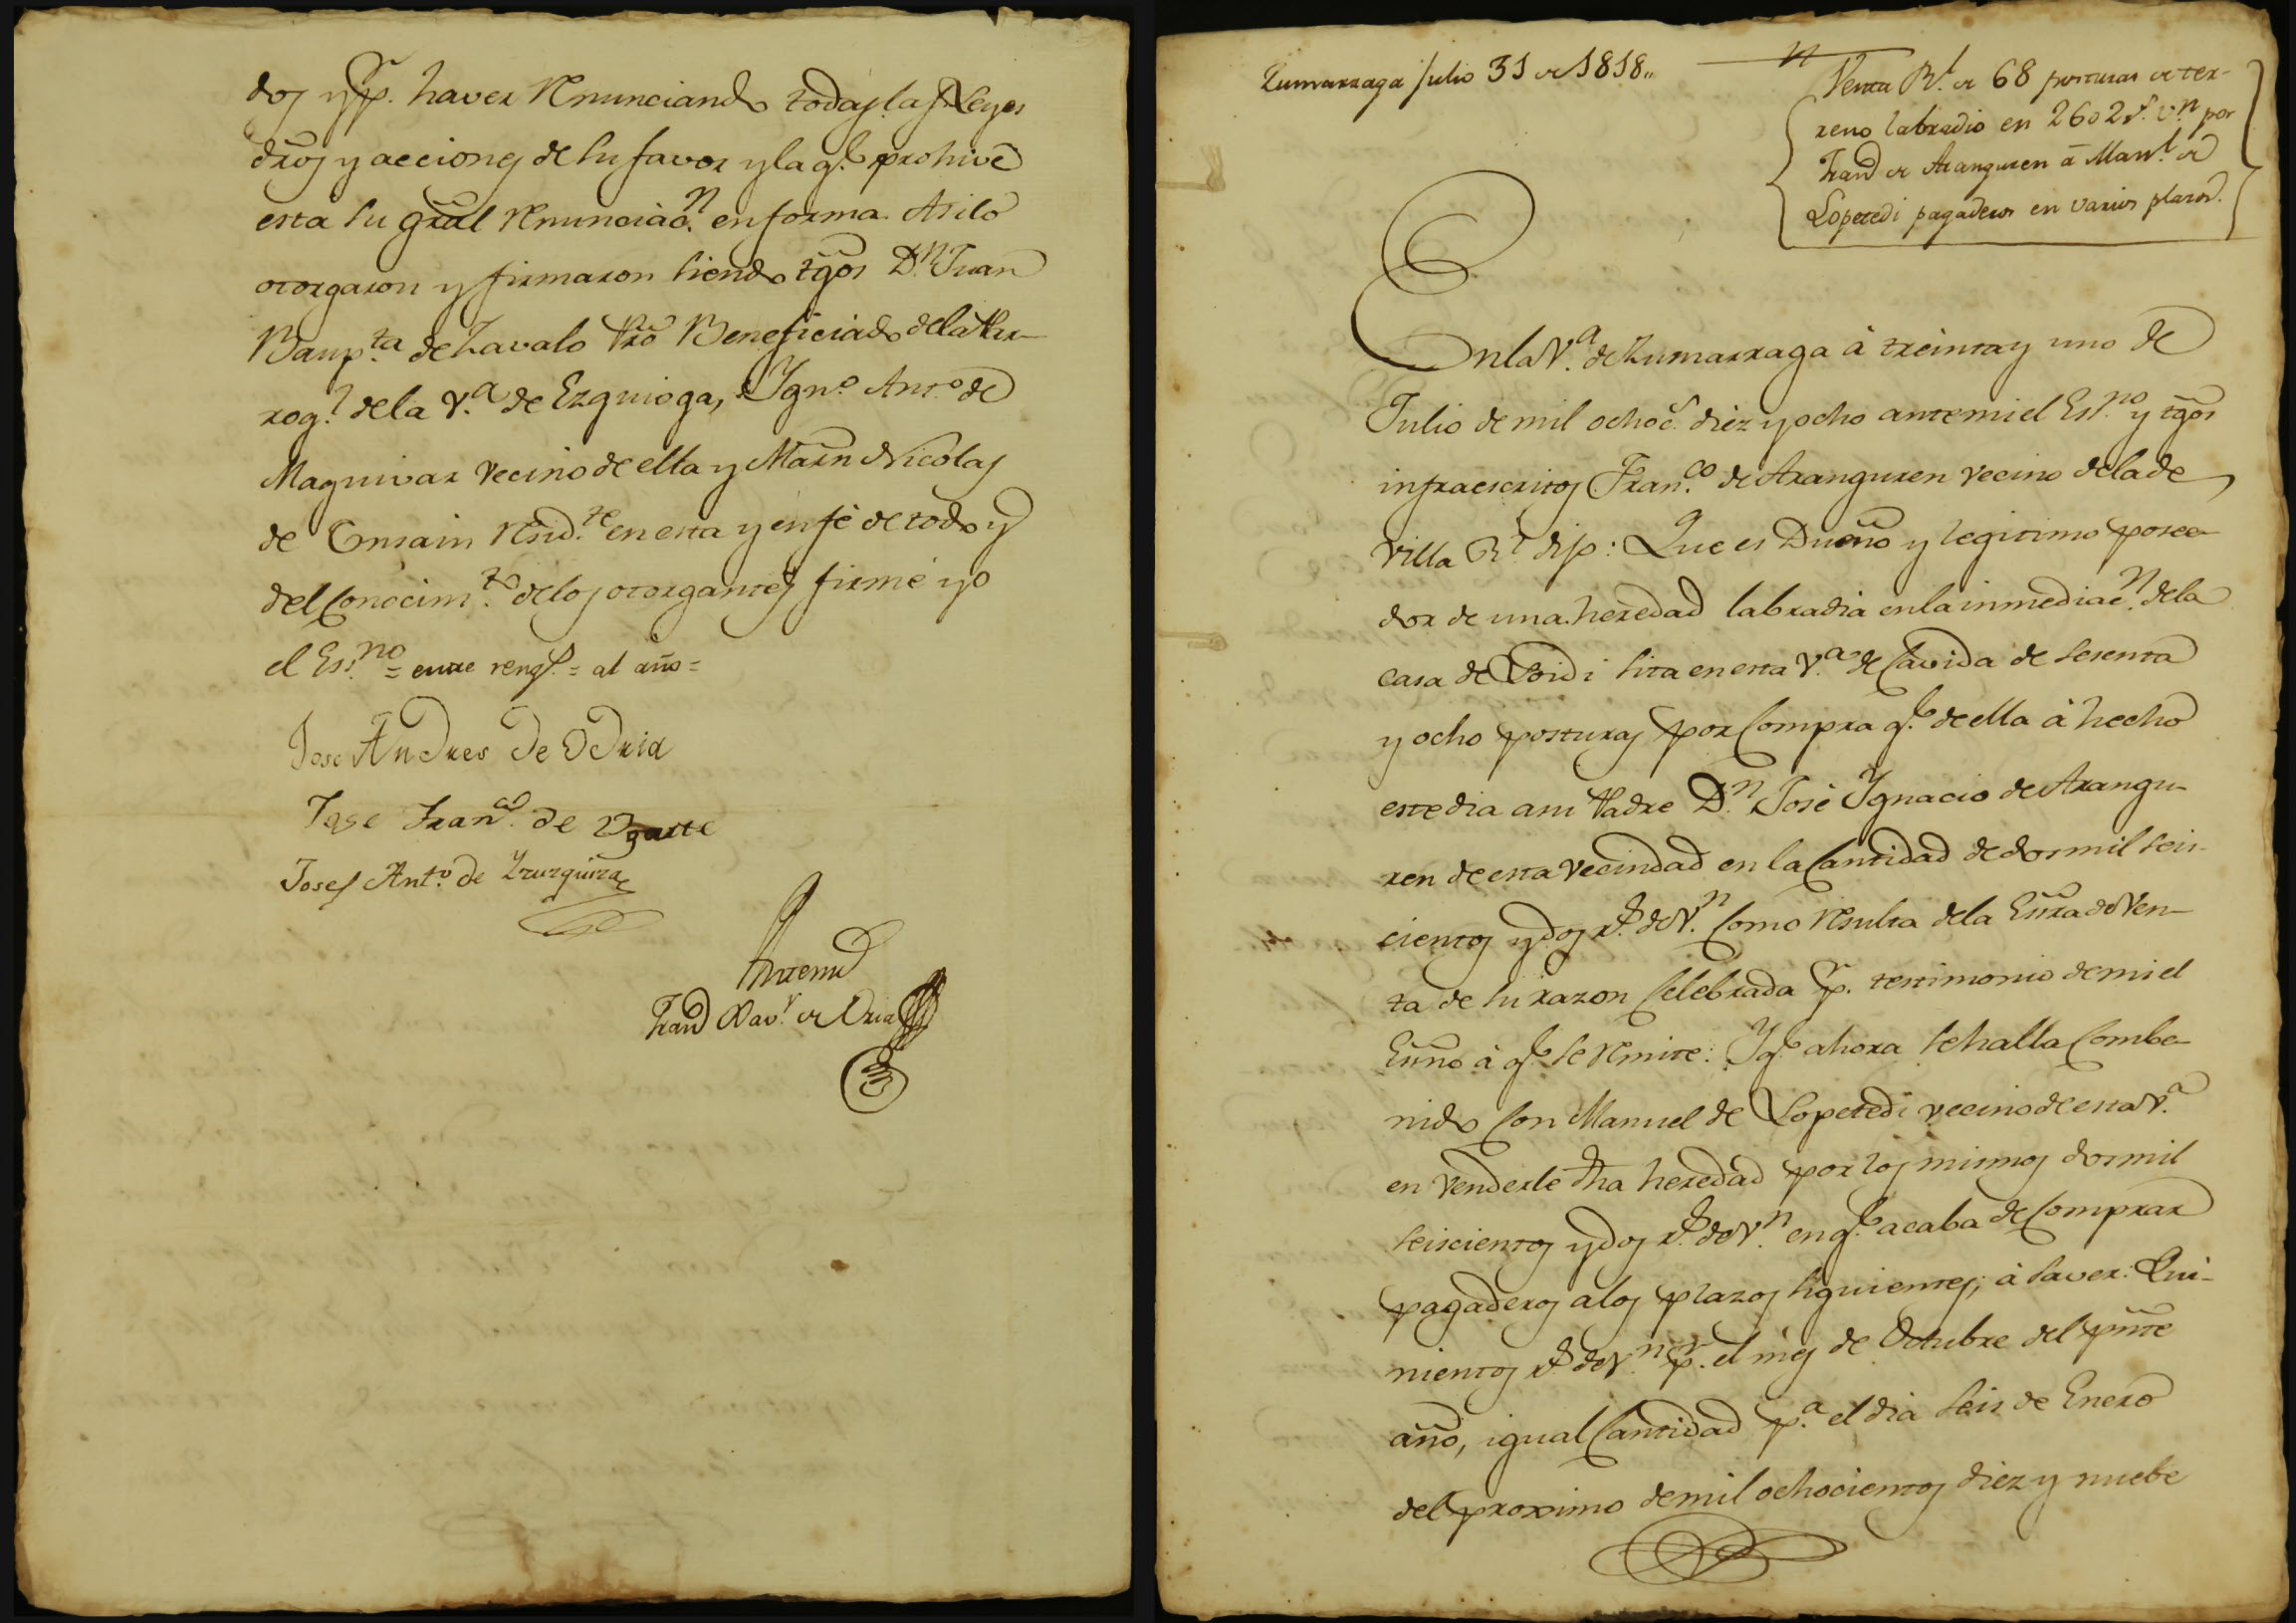 dos y p.r haver renunciando todas las Leyes
dros y acciones de su favor y la q.e prohive
esta su gral renunciaō.n en forma. Asilo
otorgaron y firmaron siendo tgos D.n Juan
Baup.ta de Zavalo Pro Beneficiado dela Par-
roq.l dela V.a de Ezquioga, Ygn.o Ant.o de
Maguivar vecino de ella y Marn Nicolas
de Ensain resid.te en esta y en fé de todo y
del Conocim.to delos otorgantes firmé yo
el Es.no = entre rengs. = al año =
Jose Andres de Odria
Jose Fran.co de Ugarte
Josef Ant.o de Yzurquiza
Antemi
Fran.co Xav.r de Oria
Zumarraga Julio 31 de 1818,,
Venta R.l de 68 posturas de ter-
reno labradio en 2602 r.s v.n por
Fran.co de Aranguren â Man.l de
Lopetedi pagaderos en varios plazos.
En la V.a de Zumarraga à treinta y uno de
Julio de mil ochoc.s diez y ocho ante mi el Es.no y tgos
infraescritos Fran.co de Aranguren vecino dela de
Villa R.l dijo: Que es Dueño y legitimo posee-
dor de una heredad labradia en la inmediac.n dela
casa de Loidi sita en esta V.a de Cavida de sesenta
y ocho posturas por Compra q.e de ella à hecho
este dia a su Padre D.n José Ygnacio de Arangu-
ren de esta vecindad en la Cantidad de dos mil seis-
cientos y dos r.s de V.n Como resulta dela Essra de Ven-
ta de su razon Celebrada p.r testimonio de mi el
Essno à q.e se remite: Y q.e ahora se halla Combe-
nido Con Manuel de Lopetedi vecino de esta V.a
en venderle dha heredad por los mismos dos mil
seiscientos y dos r.s de V.n en q.e acaba de Comprar
pagaderos alos plazos siguientes; à saver: Qui-
nientos r.s de V.n p.r el mes de Octubre del pnte
año, igual Cantidad p.a el dia seis de Enero
del proximo de mil ochocientos diez y nuebe